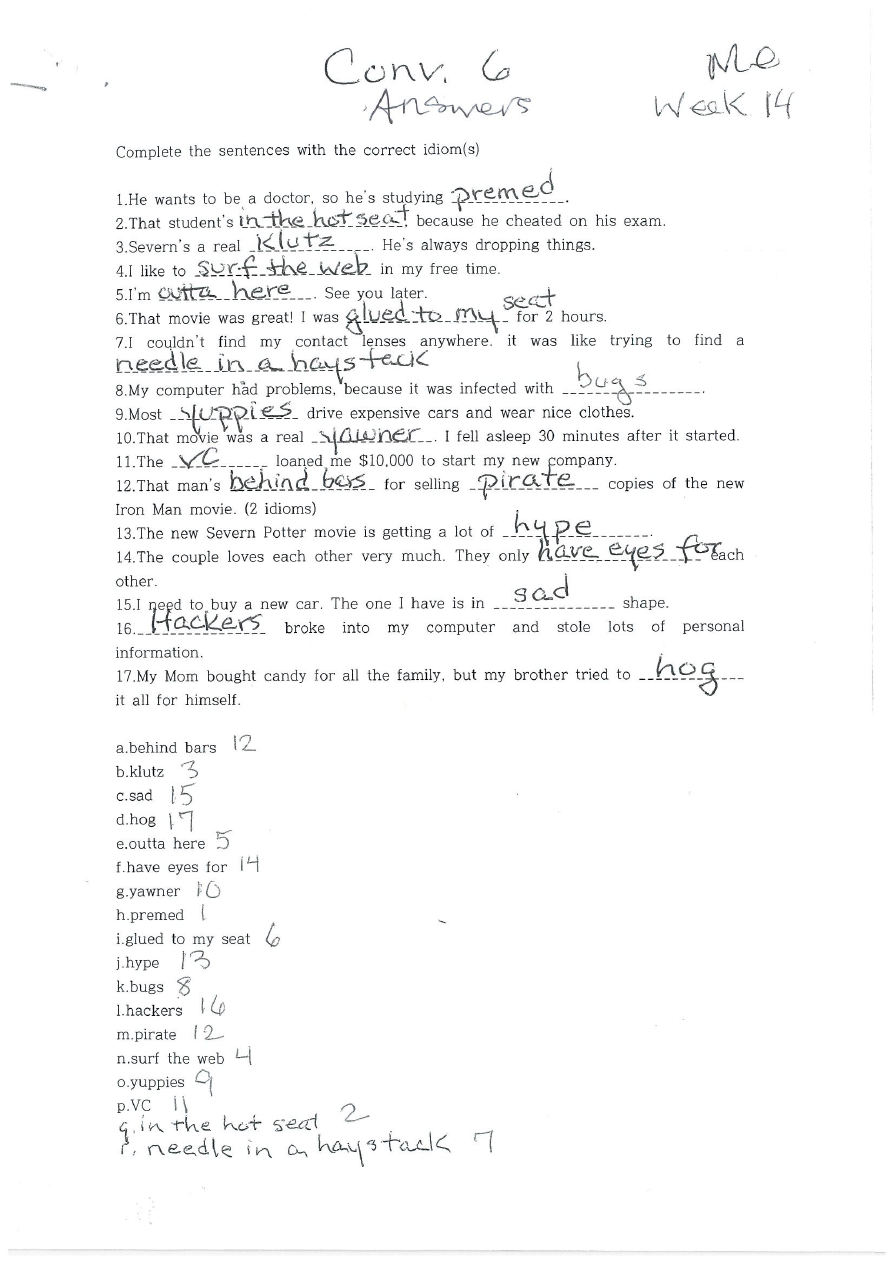 Conv. 6 Me
Answers Week 14
Complete the sentences with the correct idiom(s)
1.He wants to be a doctor, so he's studying premed.
2.That student's in the hot seat because he cheated on his exam.
3.Severn's a real klutz. He's always dropping things.
4.I like to surf the web in my free time.
5.I'm outta here. See you later.
6.That movie was great! I was glued to my seat for 2 hours.
7.I couldn't find my contact lenses anywhere. it was like trying to find a
needle in a haystack
8.My computer had problems, because it was infected with bugs.
9.Most yuppies drive expensive cars and wear nice clothes.
10.That movie was a real yawner. I fell asleep 30 minutes after it started.
11.The VC loaned me $10,000 to start my new company.
12.That man's behind bars for selling pirate copies of the new
Iron Man movie. (2 idioms)
13.The new Severn Potter movie is getting a lot of hype.
14.The couple loves each other very much. They only have eyes for each
other.
15.I need to buy a new car. The one I have is in sad shape.
16. Hackers broke into my computer and stole lots of personal
information.
17.My Mom bought candy for all the family, but my brother tried to hog
it all for himself.
a.behind bars 12
b.klutz 3
c.sad 15
d.hog 17
e.outta here 5
f.have eyes for 14
g.yawner 10
h.premed 1
i.glued to my seat 6
j.hype 13
k.bugs 8
l.hackers 16
m.pirate 12
n.surf the web 4
o.yuppies 9
p.VC 11
q.in the hot seat 2
r. needle in a haystack 7